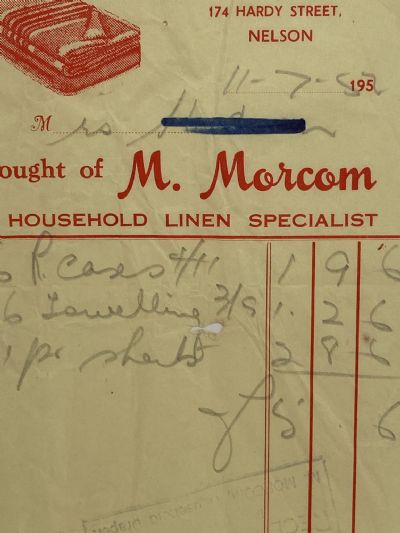 174 HARDY STREET,
NELSON
11-7-52 195
Mrs
ought of M. Morcom
HOUSEHOLD LINEN SPECIALIST
6 P. cases 4/11 1 9 6
6 Towelling 3/9 1. 2 6
1 pr sheets 2 8 6
£5 6
M. MORCOM